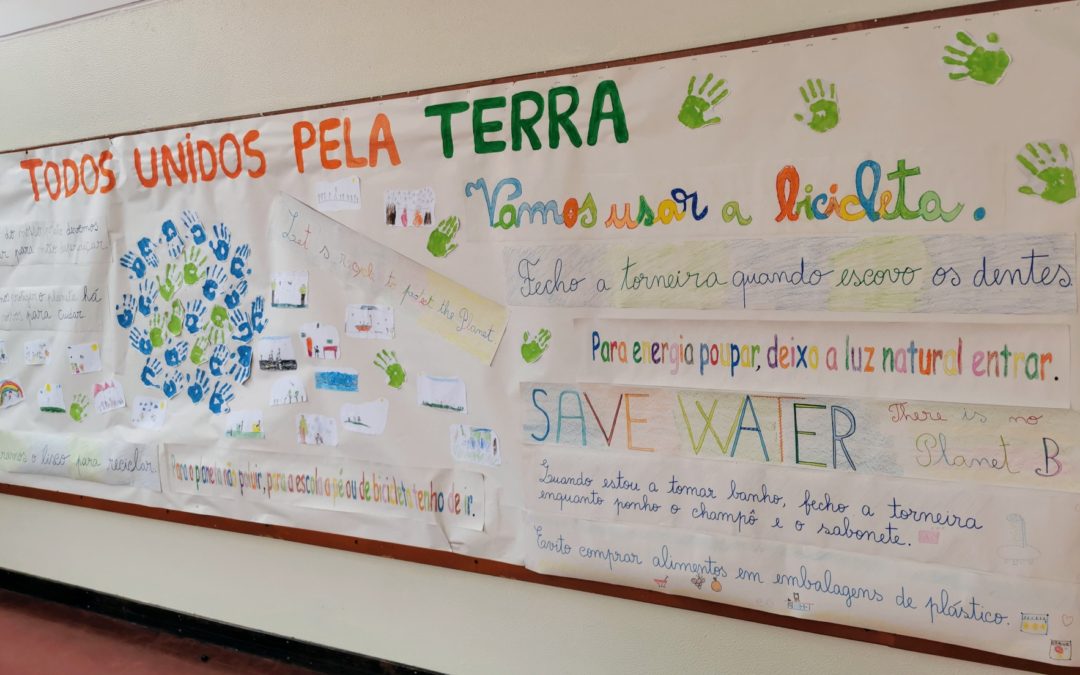 TODOS UNIDOS PELA TERRA
Vamos usar a bicicleta.
para
há
para cuidar
para reciclar
Let's to the Planet
Para o planeta não poluir, para a escola a pé ou de bicicleta tenho de ir.
Fecho a torneira quando escovo os dentes
Para energia poupar, deixo a luz natural entrar.
SAVE WATER
There is no
Planet B
Quando estou a tomar banho, fecho a torneira
enquanto ponho o champô e o sabonete.
Evito comprar alimentos em embalagens de plástico.